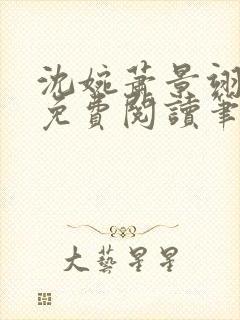 沈婉蕭景翊
免費閱讀筆
大藝星星